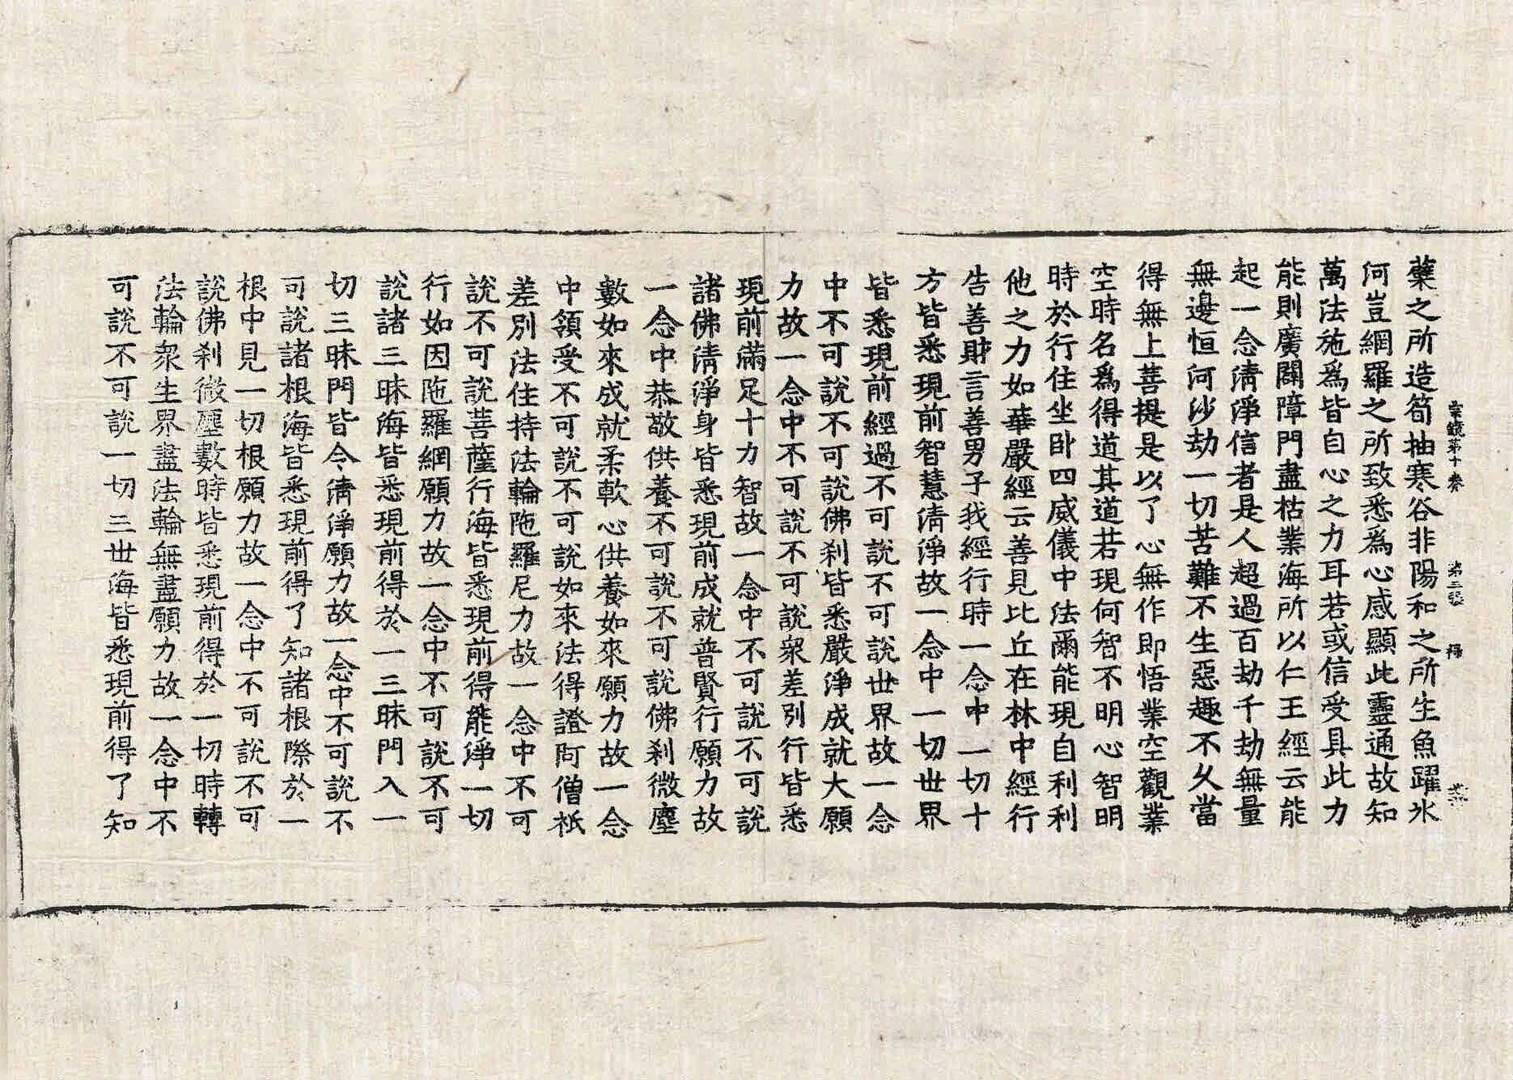 宗鏡第十卷
蘖之所造筍抽寒谷非陽和之所生魚躍氷
何豈網羅之所致悉爲心感顯此靈通故知
萬法施爲皆自心之力耳若或信受具此力
能則廣闢障門盡枯業海所以仁王經云能
起一念清淨信者是人超過百劫千劫無量
無邊恒河沙劫一切苦難不生惡趣不久當
得無上菩提是以了心無作即悟業空觀業
空時名爲得道其道若現何智不明心智明
時於行住坐卧四威儀中法爾能現自利利
他之力如華嚴經云善見比丘在林中經行
告善財言善男子我經行時一念中一切十
方皆悉現前智慧清淨故一念中一切世界
皆悉現前經過不可說不可說世界故一念
中不可說不可說佛刹皆悉嚴淨成就大願
力故一念中不可說不可說衆差別行皆悉
現前滿足十力智故一念中不可說不可說
諸佛清淨身皆悉現前成就普賢行願力故
一念中恭敬供養不可說不可說佛刹微塵
數如來成就柔軟心供養如來願力故一念
中領受不可說不可說如來法得證阿僧祇
差別法住持法輪陁羅尼力故一念中不可
說不可說菩薩行海皆悉現前得能淨一切
行如因陁羅網願力故一念中不可說不可
說諸三昧海皆悉現前得於一三昧門入一
切三昧門皆令清淨願力故一念中不可說不
可說諸根海皆悉現前得了知諸根際於一
根中見一切根願力故一念中不可說不可
說佛刹微塵數時皆悉現前得於一切時轉
法輪衆生界盡法輪無盡願力故一念中不
可說不可說一切三世海皆悉現前得了知